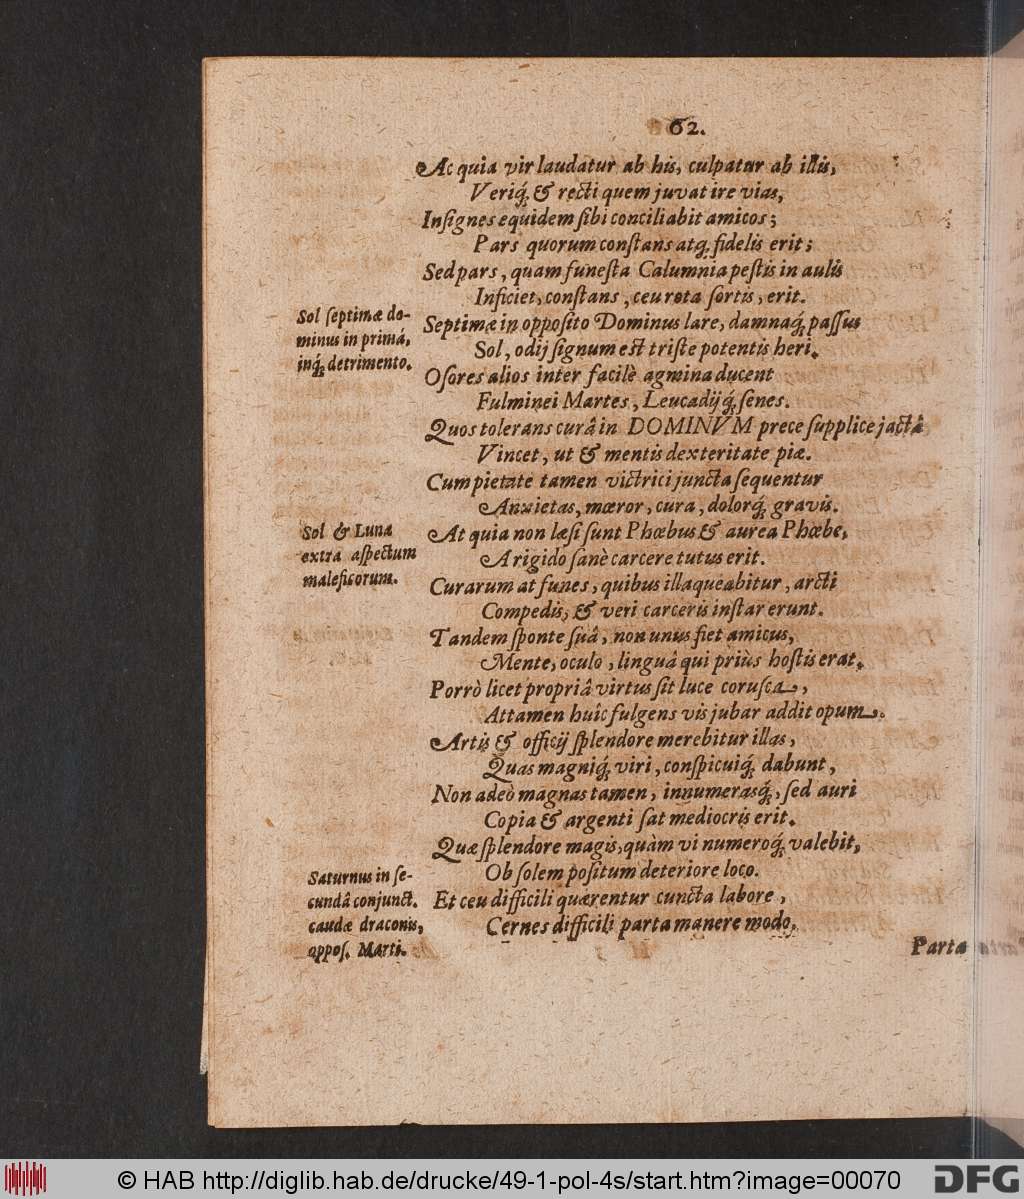 62.
Ac quia vir laudatur ab his, culpatur ab illis,
Veriq́; & recti quem juvat ire vias,
Insignes equidem sibi conciliabit amicos;
Pars quorum constans atq; fidelis erit;
Sed pars, quam funesta Calumnia pestis in aulis
Inficiet, constans, ceu rota sortis, erit.
Sol septimæ do-
minus in primâ,
inq́; detrimento.
Septimæ in opposito Dominus lare, damnaq́; passus
Sol, odij signum est triste potentis heri.
Osores alios inter facilè agmina ducent
Fulminei Martes, Leucadijq́; senes.
Quos tolerans curâ in DOMINVM prece supplice jactâ
Vincet, ut & mentis dexteritate piæ.
Cum pietate tamen victrici juncta sequentur
Anxietas, mœror, cura, dolorq́; gravis.
Sol & Luna
extra aspectum
maleficorum.
At quia non læsi sunt Phœbus & aurea Phœbe,
A rigido sanè carcere tutus erit.
Curarum at funes, quibus illaqueabitur, arcti
Compedis, & veri carceris instar erunt.
Tandem sponte suâ, non unus fiet amicus,
Mente, oculo, linguâ qui priùs hostis erat.
Porrò licet propriâ virtus sit luce corusca,
Attamen huic fulgens vis jubar addit opum.
Artis & officij splendore merebitur illas,
Quas magniq́; viri, conspicuiq́; dabunt,
Non adeò magnas tamen, innumerasq́;, sed auri
Copia & argenti sat mediocris erit.
Quæ splendore magis, quàm vi numeroq́; valebit,
Ob solem positum deteriore loco.
Saturnus in se-
cundâ conjunct.
caudæ draconis,
oppos. Marti.
Et ceu difficili quærentur cuncta labore,
Cernes difficili parta manere modo,
Parta
© HAB http://diglib.hab.de/drucke/49-1-pol-4s/start.htm?image=00070
DFG